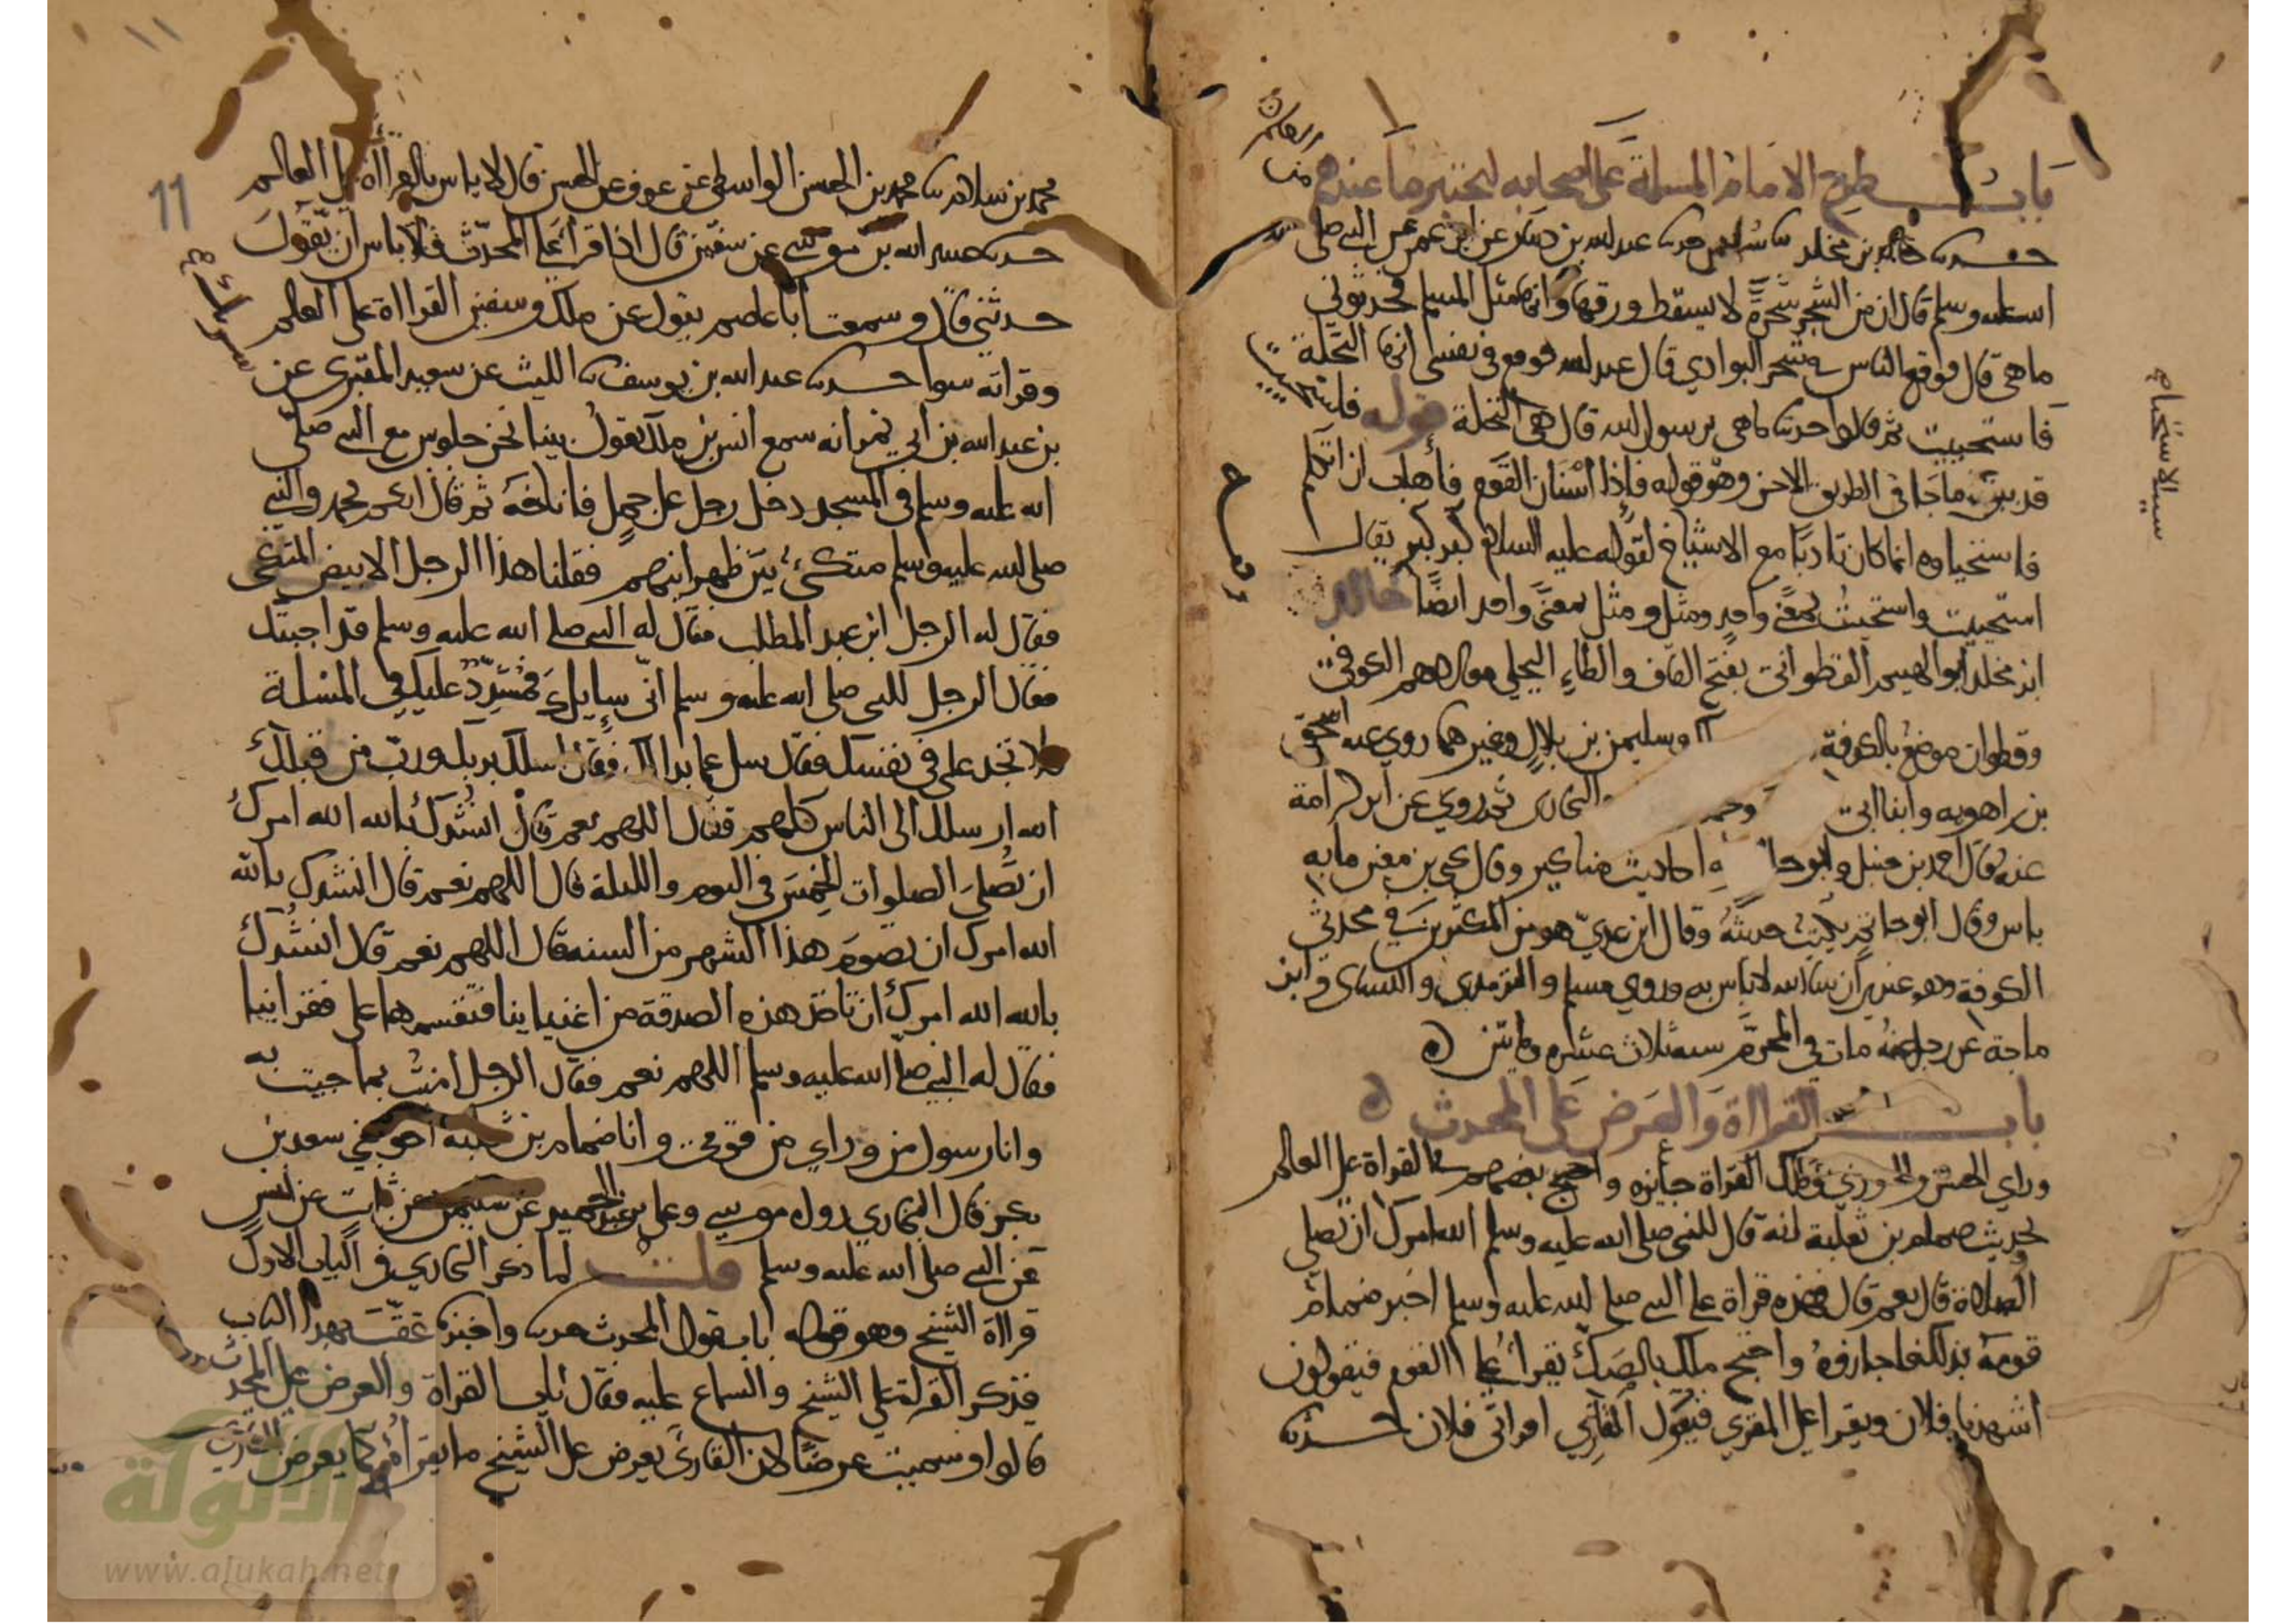 باب طرح الامام المسلة على اصحابه ليختبر ما عندهم من العلم
حدثنا خالد بن مخلد ثنا سليمن حدثنا عبد الله بن دينار عن ابن عمر عن النبي صلى
الله عليه وسلم قال ان من الشجر شجرة لا يسقط ورقها وانها مثل المسلم فحدثوني
ما هي قال فوقع الناس في شجر البوادي قال عبد الله فوقع في نفسي انها النخلة
فاستحييت ثم قالوا حدثنا ما هي يرسول الله قال هي النخلة قوله فاستحييت
قد بين ما جا في الطريق الاخر وهو قوله فإذا أسنان القوم فأهاب ان اتكلم
فاستحياوه انما كان تادبا مع الاشياخ لقوله عليه السلام كبر كبر يقال
استحييت واستحيت بمعنى واحد ومثل ومثل بمعنى واحد ايضا خالد
ابن مخلد ابو الهيثم القطواني بفتح القاف والطاء البجلي مولاهم الكوفي
وقطوان موضع بالكوفة وسليمن بن بلال وغيرهما روى عنه اسحق
بن راهويه وابنا ابي البخاري ثم روى عن ابن كرامة
عنه قال احمد بن حنبل وابو حا احاديث مناكير وقال يحيى بن معين ما به
باس وقال ابو حاتم يكتب حديثه وقال ابن عدي هو من المكثرين في محدثي
الكوفة وهو عندي ان شا الله لا باس به وروى مسلم والترمذي والنساي وابن
ماجة عن رجل عنه مات في المحرم سنه ثلاث عشره ومايتين
باب القراة والعرض على المحدث
وراى الحسن والثوري ومالك القراة جايزه واحتج بعضهم في القراة على العالم
بحديث ضمام بن ثعلبة انه قال للنبي صلى الله عليه وسلم الله امرك ان تصلي
الصلاة قال نعم قال فهذه قراة على النبي صلى الله عليه وسلم اخبر ضمام
قومه بذلك فاجازوه واحتج ملك بالصك يقرأ على القوم فيقولون
اشهدنا فلان ويقرا على المقري فيقول القاري اقراني فلان حدثنا
محمد بن سلام ثنا محمد بن الحسن الواسطي عن عوف عن الحسن قال لا باس بالقراة على العالم
حدثنا عبيد الله بن موسى عن سفين قال اذا قرأ على المحدث فلا باس ان يقول
حدثني قال وسمعت ابا عاصم يقول عن ملك وسفين القراة على العالم
وقراته سوا حدثنا عبد الله بن يوسف ثنا الليث عن سعيد المقبري عن
بن عبد الله بن ابي نمر انه سمع انس بن ملك يقول بينا نحن جلوس مع النبي صلى
الله عليه وسلم في المسجد دخل رجل على جمل فاناخه ثم قال ايكم محمد والنبي
صلى الله عليه وسلم متكئ بين ظهرانيهم فقلنا هذا الرجل الابيض المتكئ
فقال له الرجل ابن عبد المطلب فقال له النبي صلى الله عليه وسلم قد اجبتك
فقال الرجل للنبي صلى الله عليه وسلم اني سايلك فمشدد عليك في المسلة
فلا تجد علي في نفسك فقال سل عما بدا لك فقال اسلك بربك ورب من قبلك
الله ارسلك الى الناس كلهم فقال اللهم نعم قال انشدك بالله الله امرك
ان تصلي الصلوات الخمس في اليوم والليلة قال اللهم نعم قال انشدك بالله
الله امرك ان تصوم هذا الشهر من السنه قال اللهم نعم قال انشدك
بالله الله امرك ان تاخذ هذه الصدقة من اغنيا ينا فتقسمها على فقراينا
فقال له النبي صلى الله عليه وسلم اللهم نعم فقال الرجل امنت بما جيت به
وانا رسول من وراي من قومي وانا ضمام بن ثعلبه اخو بني سعد بن
بكر قال البخاري رواه موسى وعلي بن عبد الحميد عن سليمن عن ثابت عن انس
عن النبي صلى الله عليه وسلم قلت لما ذكر البخاري في الباب الاول
قراة الشيخ وهو قوله باب قول المحدث حدثنا واخبرنا عقبه بهذا الباب
فذكر القراة على الشيخ والسماع عليه فقال باب القراة والعرض على المحدث
قالوا وسميت عرضا لان القارئ يعرض على الشيخ ما يقرأه كما يعرض القران
11